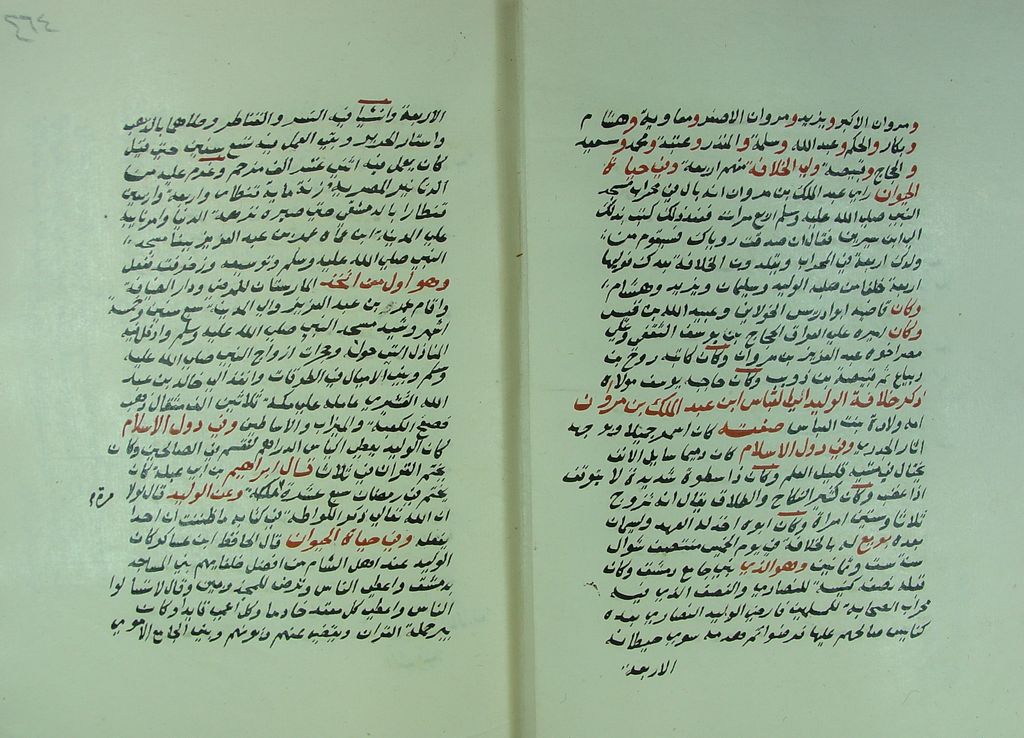 ومروان الاكبر ويزيد ومروان الاصغر ومعاوية وهشام
وبكار والحكم وعبد الله وسلمة والمنذر وعتبة ومحمد وسعيد
والحجاج وقبيصة ولي الخلافة منهم اربعة وفي حياة
الحيوان راى عبد الملك بن مروان انه بال في محراب مسجد
النبي صلى الله عليه وسلم اربع مرات فغمه ذلك كتب بذلك
الى ابن سيرين فقال ان صدقت روياك فسيقوم من
ولدك اربعة في المحراب ويتقلدون الخلافة بعدك فوليها
اربعة خلفا من صلبه الوليد وسليمان ويزيد وهشام
وكان قاضيه ابو ادريس الخولاني وعبد الله بن قيس
وكان اميره على العراق الحجاج بن يوسف الثقفي وعلى
مصر اخوه عبد العزيز بن مروان وكان كاتبه روح بن
زنباع ثم قبيصة بن ذويب وكان حاجبه يوسف مولاه
ذكر خلافة الوليد ابي العباس ابن عبد الملك بن مروان
امه ولادة بنت العباس صفته كان اسمر جميلا وبوجهه
اثار الجدري وفي دول الاسلام كان دميما سايل الانف
يختال في مشيه قليل العلم وكان ذا سطوة شديدة لا يتوقف
اذا غضب وكان كثير النكاح والطلاق يقال انه تزوج
ثلاثا وستين امراة وكان ابوه اخذ له العهد ولسليمان
بعده بويع له بالخلافة في يوم الخميس منتصف شوال
سنة ست وثمانين وهو الذي بنى جامع دمشق وكان
قبله نصف كنيسة للنصارى والنصف الذي فيه
محراب الصحابة للمسلمين فارضى الوليد النصارى بعدة
كنايس صالحهم عليها فرضوا ثم هدمه سوى حيطانه
الاربعة
الاربعة وانشا فيه النسر والقناطر وحلاها بالذهب
واستار الحرير وبقي العمل فيه تسع سنين حتى قيل
كان يعمل فيه اثني عشر الف مرخم وغرم عليه من
الدنانير المصرية زنة ماية قنطار واربعة واربعين
قنطارا بالدمشقي حتى صيره نزهة الدنيا وامر نايبه
على المدينة ابن عمه عمر بن عبد العزيز ببنا مسجد
النبي صلى الله عليه وسلم وتوسيعه وزخرفته ففعل
وهو اول من اتخذ المارستان للمرضى ودار الضيافة
واقام عمر بن عبد العزيز والي المدينة سبع سنين وخمسة
اشهر وشيد مسجد النبي صلى الله عليه وسلم وادخل فيه
المنازل التي حوله وحجرات ازواج النبي صلى الله عليه
وسلم وبنى الاميال في الطرقات وانفذ الى خالد بن عبد
الله القسري عامله على مكة ثلاثين الف مثقال ذهب
فصفح الكعبة والميزاب والاساطين وفي دول الاسلام
كان الوليد يعطي اكياس الدراهم لتقسم في الصالحين وكان
يختم القران في ثلاث قال ابراهيم بن ابي عبلة كان
يختم في رمضان سبع عشرة وعن الوليد قال لولا
مرة
ان الله تعالى ذكر اللواطة في كتابه ما ظننت ان احدا
يفعله وفي حياة الحيوان قال الحافظ ابن عساكر كان
الوليد عند اهل الشام من افضل خلفايهم بنى المساجد
بدمشق واعطى الناس وفرض للمجذومين وقال لا تسالوا
الناس واعطى كل مقعد خادما وكل اعمى قايدا وكان
يبر حملة القران ويقضي عنهم ديونهم وبنى الجامع الاموي